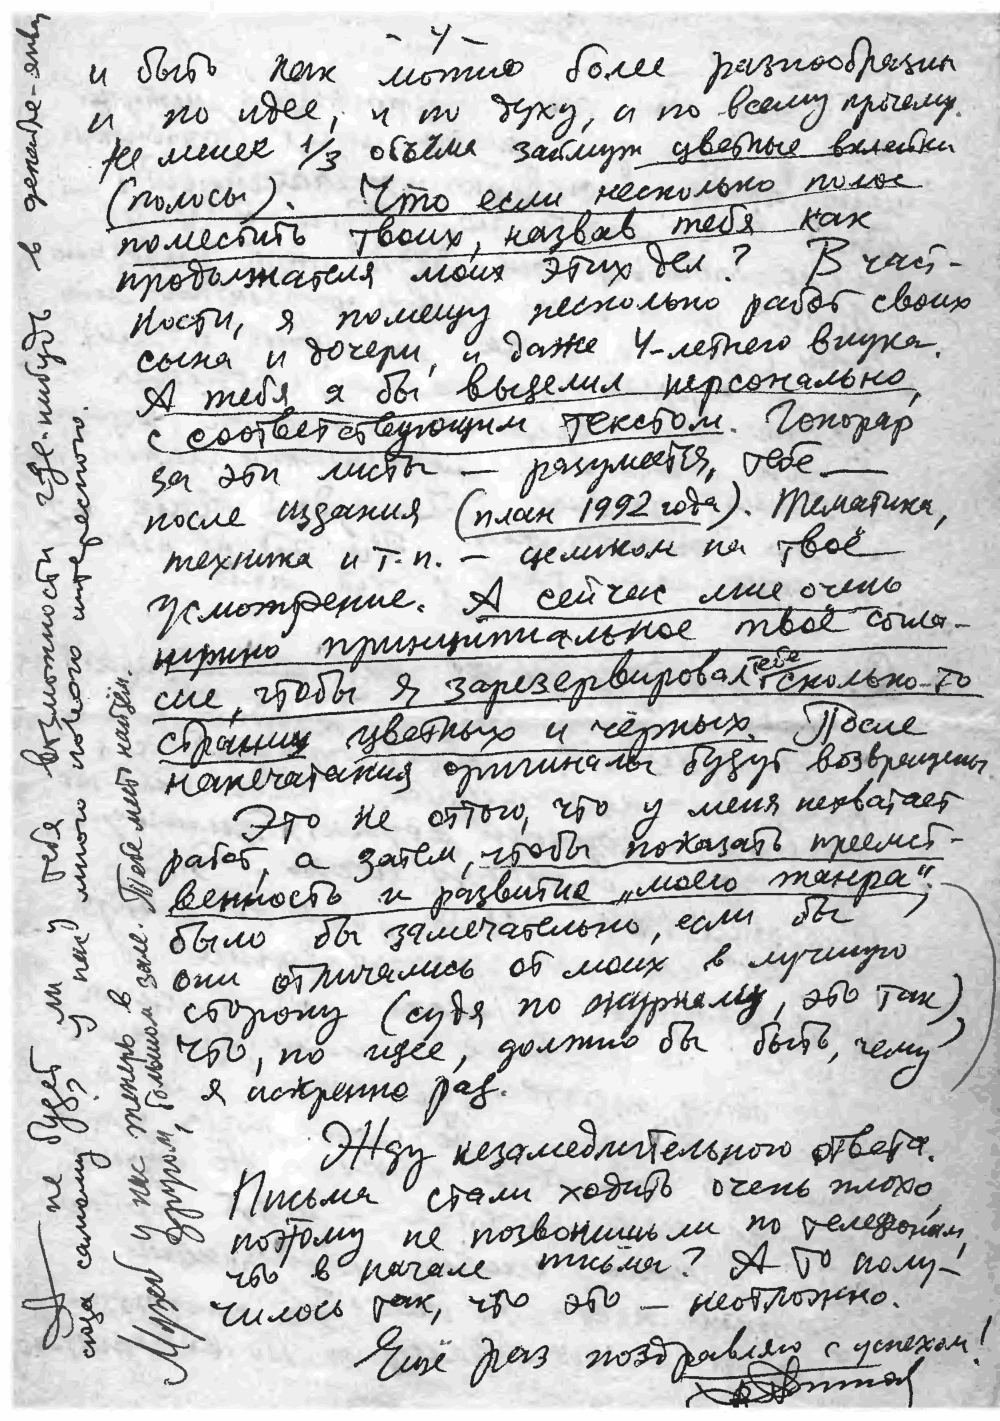 - 4 -
и быть как можно более разнообразны
и по идее, и по духу, и по всему прочему.
Не менее 1/3 объёма займут цветные вклейки
(полосы). Что если несколько полос
поместить твоих, назвав тебя как
продолжателя моих этих дел? В част-
ности, я помещу несколько работ своих
сына и дочери, и даже 4-летнего внука.
А тебя я бы выделил персонально,
с соответствующим текстом. Гонорар
за эти листы — разумеется, тебе —
после издания (план 1992 года). Тематика,
техника и т.п. — целиком на твоё
усмотрение. А сейчас мне очень
нужно принципиальное твоё согла-
сие, чтобы я зарезервировал тебе сколько-то
страниц цветных и чёрных. После
напечатания оригиналы будут возвращены.
Это не оттого, что у меня нехватает
работ, а затем, чтобы показать преемст-
венность и развитие „моего жанра“.
было бы замечательно, если бы
они отличались от моих в лучшую
сторону (судя по журналу, это так),
что, по идее, должно бы быть, чему
я искренно рад.
Жду незамедлительного ответа.
Письма стали ходить очень плохо,
поэтому не позвонишь ли по телефонам,
что в начале письма? А то полу-
чилось так, что это — неотложно.
Ещё раз поздравляю с успехом!
А — не будет ли у тебя возможности где-нибудь в декабре-янв
сюда самому? У нас много нового интересного.
Музей у нас теперь в
другом, большом зале. Тебе мест найдём.